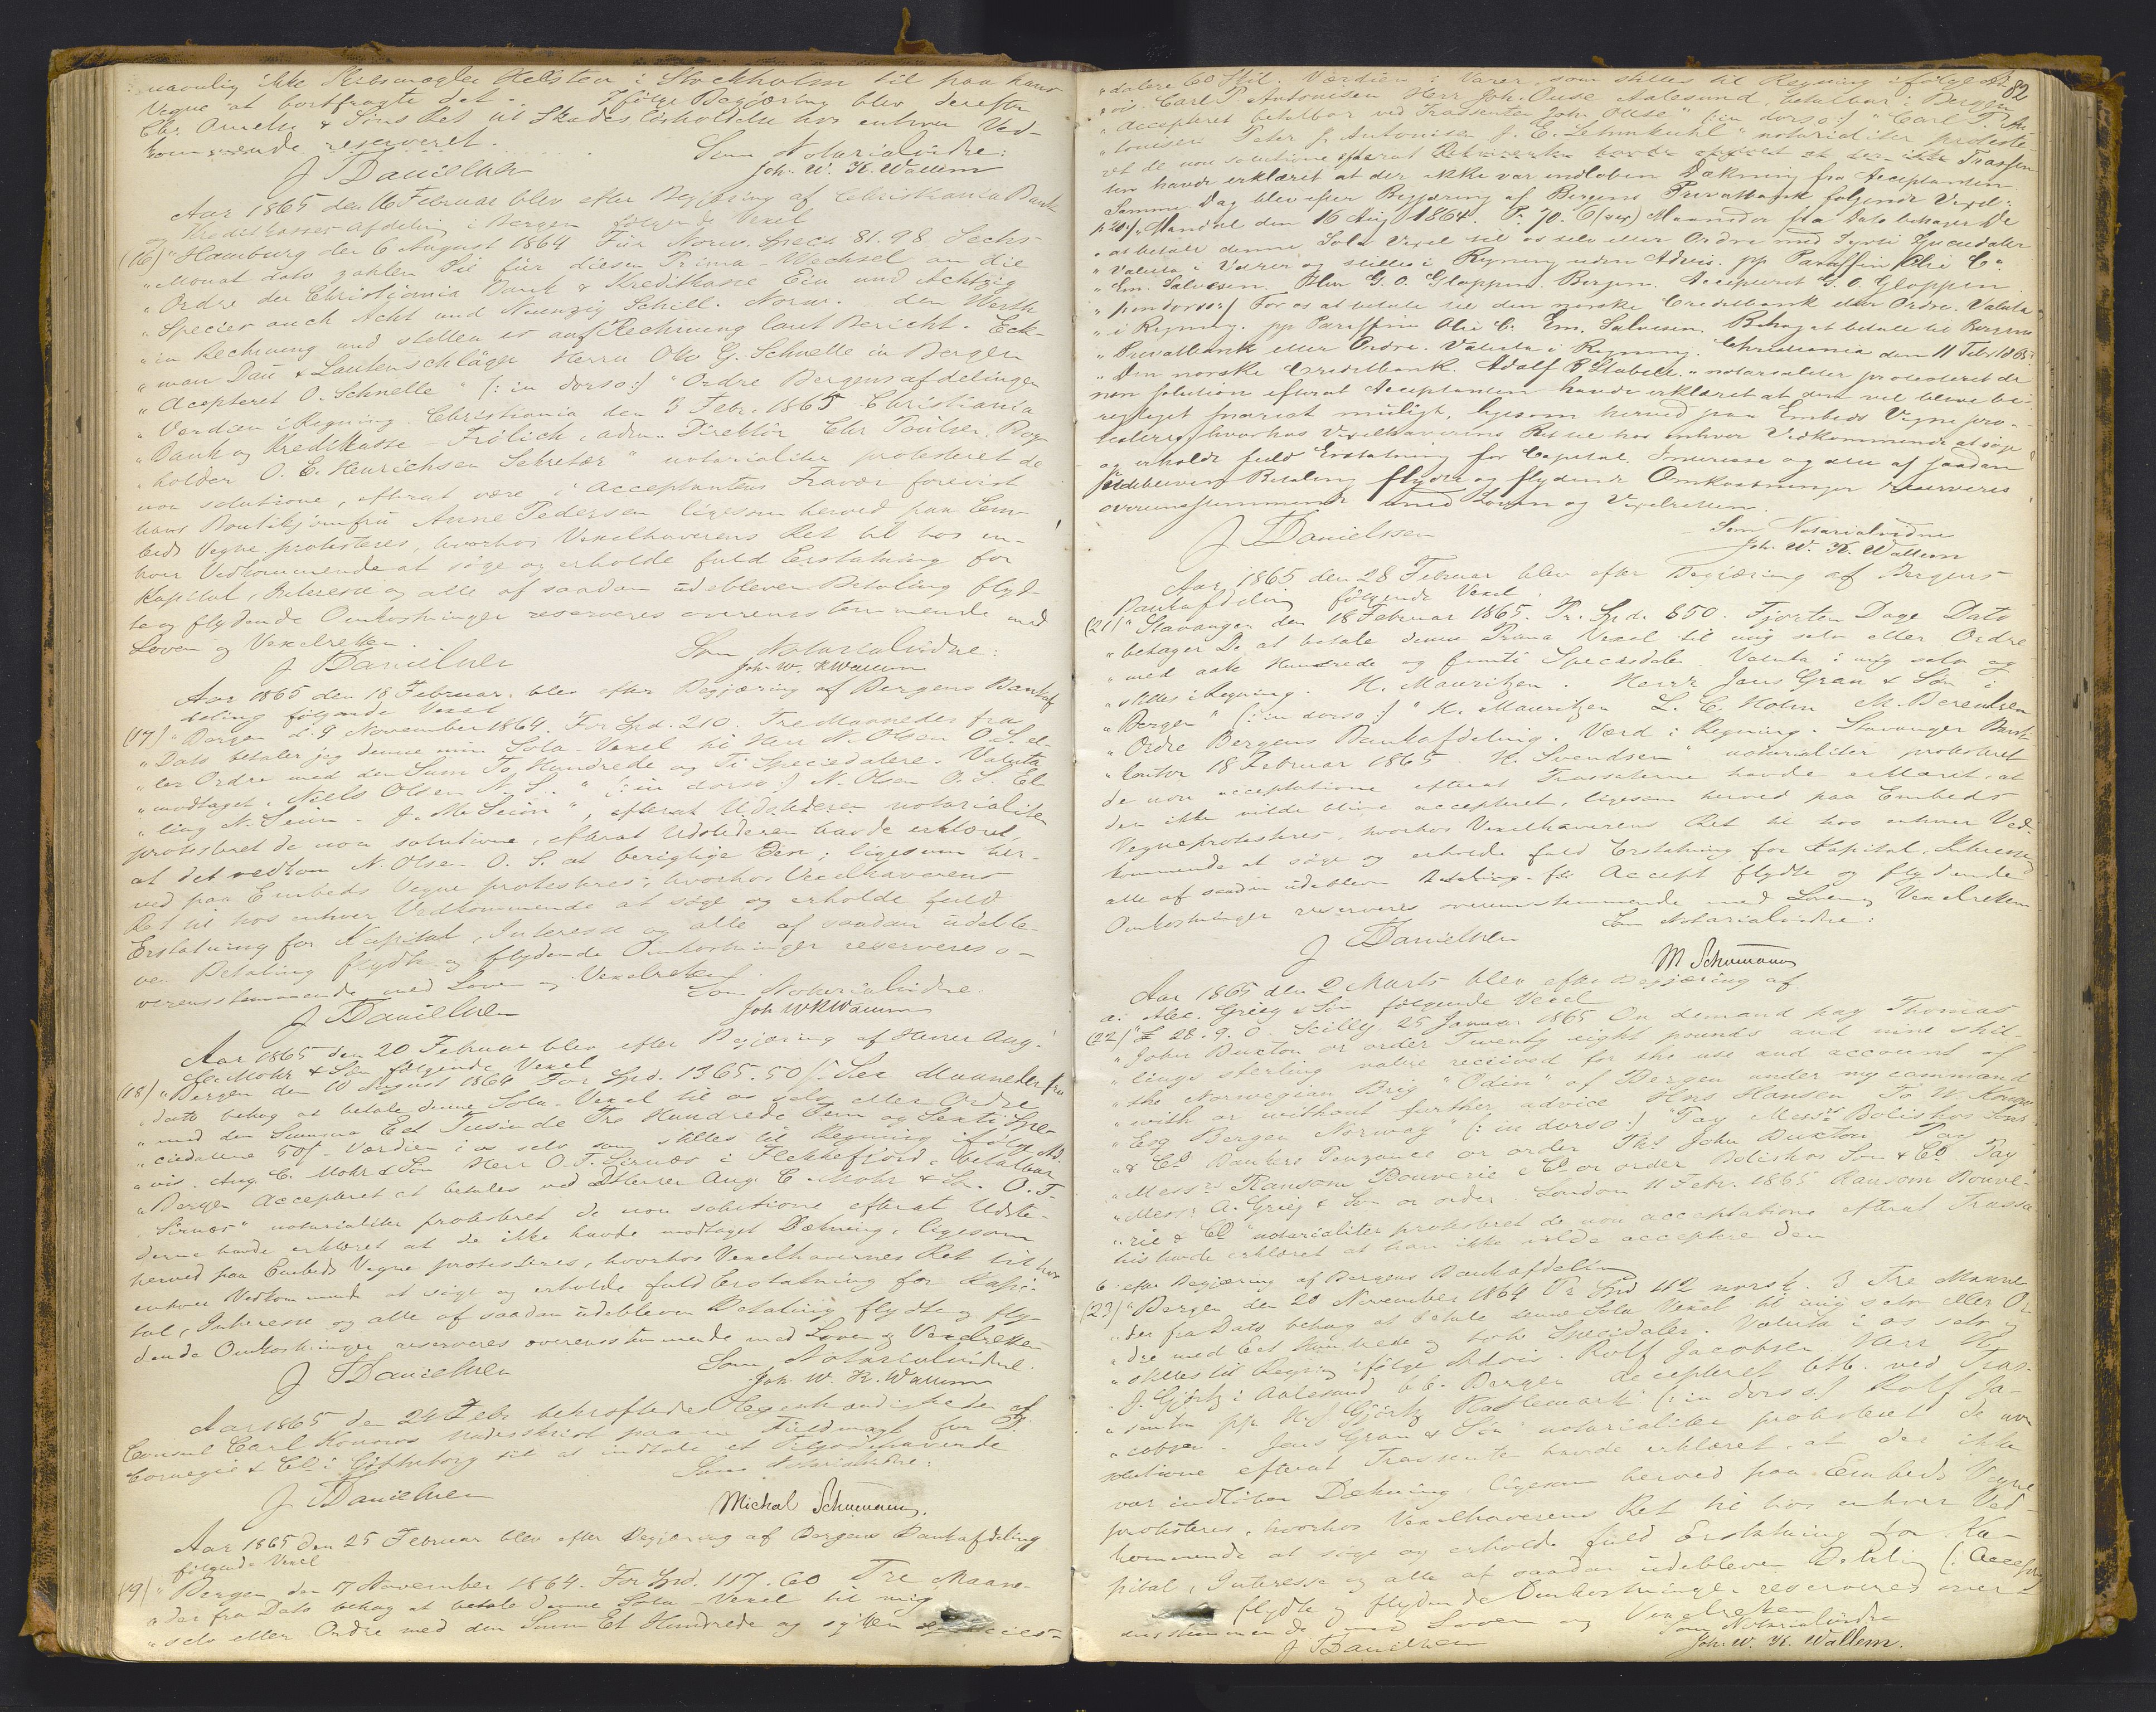 navnlig ikke Skibsmægler Hellsten i Stockholm til paa hans
Vegne at bortfragte det. Ifølge Begjæring blev derefter
Chr. Ameln & Søns Ret til Skadesløsholdelse hos enhver Ved-
kommende reserveret.
Som Notarialvidne:
J Danielsen Joh. W. K. Wallem
Aar 1865 den 16 Februar blev efter Begjæring af Christiania Bank
og Kreditkasses Afdeling i Bergen følgende Vexel
(16) "Hamburg den 6 August 1864 Für Norw. Specs 81.98. Sechs
"Monat dato zahlen Sie für diesen Prima-Wechsel an die
"Ordre der Christiania Bank & Kreditkasse Ein und Achtzig
"Species auch Acht und Neunzig Schill. Norw. den Werth
"in Rechnung und stellen es auf Rechnung laut Bericht. Eck-
"man Dau & Lautenschläger Herrn Ole G. Schnelle in Bergen
"Accepteret O. Schnelle" (: in dorso:) "Ordre Bergensafdelingen
"Værdien i Regning. Christiania den 3 Febr. 1865 Christiania
"Bank og Kreditkasse Frölich, adm. Direktör Chr Poulsen Bog-
"holder O. E. Henrichsen Sekretær" notarialiter protesteret de
non solutione, efterat være i Acceptantens Fravær forevist
hans Boutikjomfru Anne Pedersen ligesom herved paa Em-
beds Vegne protesteres, hvorhos Vexelhaverens Ret til hos en-
hver Vedkommende at søge og erholde fuld Erstatning for
Kapital, Interesse og alle af saadan udebleven Betaling flyd-
te og flydende Omkostninger reserveres overensstemmende med
Loven og Vexelretten.
Som Notarialvidne:
J Danielsen Joh. W. K Wallem
Aar 1865 den 18 Februar blev efter Begjæring af Bergens Bankaf-
deling følgende Vexel
(17) "Bergen d. 9 November 1864. For Spd. 210. Tre Maaneder fra
"Dato betaler jeg denne min Sola-Vexel til Herr N. Olsen O. S. el-
"ler Ordre med den Sum To Hundrede og Ti Speciedalere. Valuta
"modtaget. Niels Olsen N. S." (: in dorso:) N. Olsen O. S. El-
"ling N. Seim. J. M. Seim", efterat Udstederen notarialiter
protesteret de non solutione, efterat Udstederen havde erklæret,
at det vedkom N. Olsen O. S. at berigtige den; ligesom her-
ved paa Embeds Vegne protesteres, hvorhos Vexelhaverens
Ret til hos enhver Vedkommende at søge og erholde fuld
Erstatning for Kapital, Interesse og alle af saadan udeble-
ven Betaling flydte og flydende Omkostninger reserveres o-
verensstemmende med Loven og Vexelretten.
Som Notarialvidne.
J Danielsen Joh W K Wallem
Aar 1865 den 20 Februar blev efter Begjæring af Herrer Aug.
C. Mohr & Søn følgende Vexel
(18) "Bergen den 10 August 1864 For Spd. 1365.50 ß. Sex Maaneder fra
"dato behag at betale denne Sola-Vexel til os selv eller Ordre
"med den Summa Eet Tusinde Tre Hundrede Fem og Sexti Spe-
"ciedalere 50 ß. Værdien i os selv som stilles til Regning ifølge Ad-
"vis. Aug. C. Mohr & Søn Herr O. F. Sirnæs i Flekkefjord, betalbar
"Bergen Accepteret at betales ved Herrer Aug. C. Mohr & Søn. O. F.
"Sirnæs" notarialiter protesteret de non solutione efterat Udste-
derne havde erklæret at de ikke havde modtaget Dækning, ligesom
herved paa Embeds Vegne protesteres, hvorhos Vexelhavernes Ret til hos
enhver Vedkommende at søge og erholde fuld Erstatning for Kapi-
tal, Interesse og alle af saadan udebleven Betaling flydte og fly-
dende Omkostninger reserveres overensstemmende med Loven og Vexelretten
Som Notarialvidne.
J Danielsen Joh. W. K. Wallem
Aar 1865 den 24 Febr. bekræftedes Egenhændigheden af
Consul Carl Konows Underskrift paa en Fuldmagt for D.
Carnegie & Co i Gøtheborg til at indtale et Tilgodehavende
Som Notarialvidne:
J Danielsen Michal Schumann.
Aar 1865 den 25 Februar blev efter Begjæring af Bergens Bankafdeling
følgende Vexel
(19) "Bergen den 17 November 1864. For Spd. 117.60 Tre Maane-
"der fra Dato behag at betale denne Sola-Vexel til mig
"selv eller Ordre med den Sum Et Hundrede og sytten Specie-
82
"dalere 60 Skil. Værdien i Varer, som stilles til Regning ifølge Ad-
"vis. Carl P. Antonisen Herr Joh. Ouse Aalesund, betalbar i Bergen
"Accepteret betalbar ved Trassenten John Ouse" (:in dorso:) "Carl P. An-
"tonisen Peter J. Antonisen J. E. Lehmkuhl" notarialiter proteste-
ret de non solutione efterat Trassen-
ten havde erklæret at der ikke var indløben Dækning fra Acceptanten.
Samme Dag blev efter Begjæring af Bergens Privatbank følgende Vexel:
(20) "Mandal den 16 Aug 1864. P. 70. 6 (sex) Maaneder fra Dato behager De
"at betale denne Sola Vexel til os selv eller Ordre med Sytti Speciedaler
"Valuta i Varer og stilles i Regning uden Advis. pp Paraffin Olie Co.
"Em. Salvesen. Herr G. O. Gloppen. Bergen. Accepteret G. O. Gloppen
"(:in dorso:) For os at betale til den norske Creditbank eller Ordre. Valuta
"i Regning. pp Paraffin Olie C. Em. Salvesen. Behag at betale til Bergens
"Privatbank eller Ordre. Valuta i Regning. Christiania den 11 Febr 1865.
"Den norske Creditbank. Adolf B Stabell." notarialiter protesteret de
non solution efterat Acceptanten havde erklæret at den vil blive be-
rigtiget snarest muligt, ligesom herved paa Embeds Vegne pro-
testeres, hvorhos Vexelhaverens Ret til hos enhver Vedkommende at søge
og erholde fuld Erstatning for Capital, Interesse og alle af saadan
udebleven Betaling flydte og flydende Omkostninger reserveres
overensstemmende med Loven og Vexelretten.
Som Notarialvidne
J Danielssen Joh. W. K. Wallem
Aar 1865 den 28 Februar blev efter Begjæring af Bergens
Bankafdeling følgende Vexel
(21) "Stavanger den 18 Februar 1865. Pr. Spd. 850. Fjorten Dage Dato
"behager De at betale denne Prima Vexel til mig selv eller Ordre
"med aatte Hundrede og femti Speciesdaler. Valuta i mig selv og
"stilles i Regning. H. Mauritzen. Herr Jens Gran & Søn i
"Bergen" (: in dorso:) "H. Mauritzen L. C. Holm M. Berentsen
"Ordre Bergens Bankafdeling. Værd i Regning. Stavanger Bank-
"contor 18 Februar 1865 H. Svendsen" notarialiter protesteret
de non acceptatione efterat Trassaterne havde erklæret, at
den ikke vilde blive accepteret, ligesom herved paa Embeds
Vegne protesteres, hvorhos Vexelhaverens Ret til hos enhver Ved-
kommende at søge og erholde fuld Erstatning for Kapital, Interesse og
alle af saadan udebleven Accept flydte og flydende
Omkostninger reserveres overensstemmende med Loven og Vexelretten.
Som Notarialvidne:
J Danielsen M Schumann
Aar 1865 den 2 Marts blev efter Begjæring af
a. Alex. Grieg & Søn følgende Vexel
(22) "£ 28.9.0. Scilly 25 Januar 1865 On demand pay Thomas
"John Buxton or order Twenty eight pounds and nine shil-
"lings sterling value received for the use and account of
"the Norwegian Brig "Odin" of Bergen under my command
"with or without further advice Hns Hansen To W. Konow
"Esq Bergen Norway" (: in dorso:) "Pay Messrs Bolithos Sons
"& Co Bankers Penzance or order Ths John Buxton Pay
"Messrs Ransom Bouverie & Co or order Bolithos Son & Co Pay
"Messr A. Grieg & Søn or order. London 11 Febr. 1865 Ransom Bouve-
"rie & Co" notarialiter protesteret de non acceptatione efterat Trassa-
tus havde erklæret at han ikke vilde acceptere den
b. efter Begjæring af Bergens Bankafdeling
(23) "Bergen den 28 November 1864 Pr Spd 112 norsk. 3 Tre Maane-
"der fra Dato behag at betale denne Sola Vexel til mig selv eller Or-
"dre med Eet Hundrede og tolv Speciedaler. Valuta i os selv og
"stilles til Regning ifølge Advis. Rolf Jacobsen Herr H.
"J. Gjørtz i Aalesund bb. Bergen Accepteret btb. ved Tras-
"senten pp H. J. Gjørtz Haslemark" (: in dorso:) Rolf Ja-
"cobsen. Jens Gran & Søn" notarialiter protesteret de non
solutione efterat Trassente havde erklæret, at der ikke
var indløben Dækning, ligesom herved paa Embeds Vegne
protesteres, hvorhos Vexelhaverens Ret til hos enhver Ved-
kommende at søge og erholde fuld Erstatning for Ka-
pital, Interesse og alle af saadan udebleven Betaling (: Accept:)
flydte og flydende Omkostninger reserveres over-
ensstemmende med Loven og Vexelretten
Som Notarialvidne
J Danielsen Joh. W. K. Wallem.